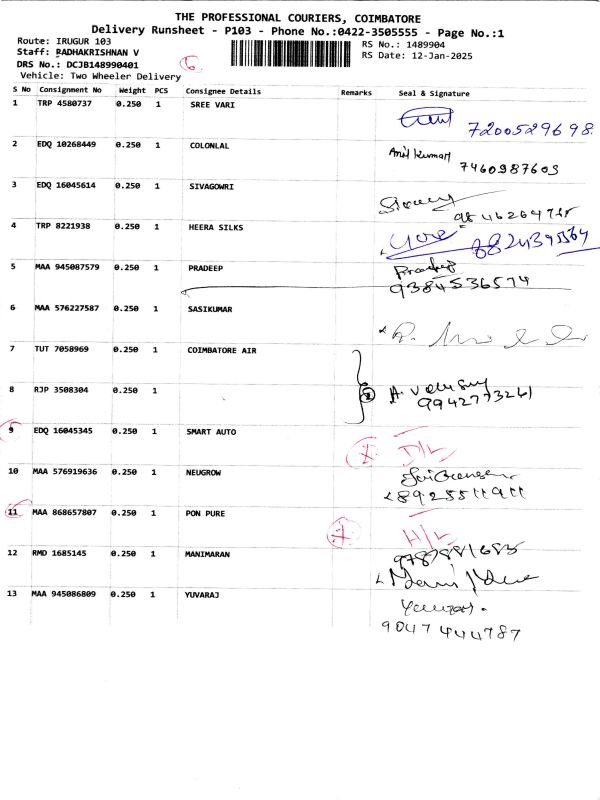 THE PROFESSIONAL COURIERS, COIMBATORE
Delivery Runsheet - P103 - Phone No.:0422-3505555 - Page No.:1
Route: IRUGUR 103
RS No.: 1489904
Staff: RADHAKRISHNAN V
RS Date: 12-Jan-2025
DRS No.: DCJB148990401
Vehicle: Two Wheeler Delivery
S No Consignment No Weight PCS Consignee Details Remarks Seal & Signature
1 TRP 4580737 0.250 1 SREE VARI
7200529698
2 EDQ 10268449 0.250 1 COLONLAL Anil Kumar
7460987603
3 EDQ 16045614 0.250 1 SIVAGOWRI
4 TRP 8221938 0.250 1 HEERA SILKS
5 MAA 945087579 0.250 1 PRADEEP Pradeep
9384536574
6 MAA 576227587 0.250 1 SASIKUMAR
7 TUT 7058969 0.250 1 COIMBATORE AIR
8 RJP 3508304 0.250 1 2
9942773261
9 EDQ 16045345 0.250 1 SMART AUTO D/L
10 MAA 576919636 0.250 1 NEUGROW
8925511911
11 MAA 868657807 0.250 1 PON PURE H/L
9787881685
12 RMD 1685145 0.250 1 MANIMARAN
13 MAA 945086809 0.250 1 YUVARAJ
9047444787